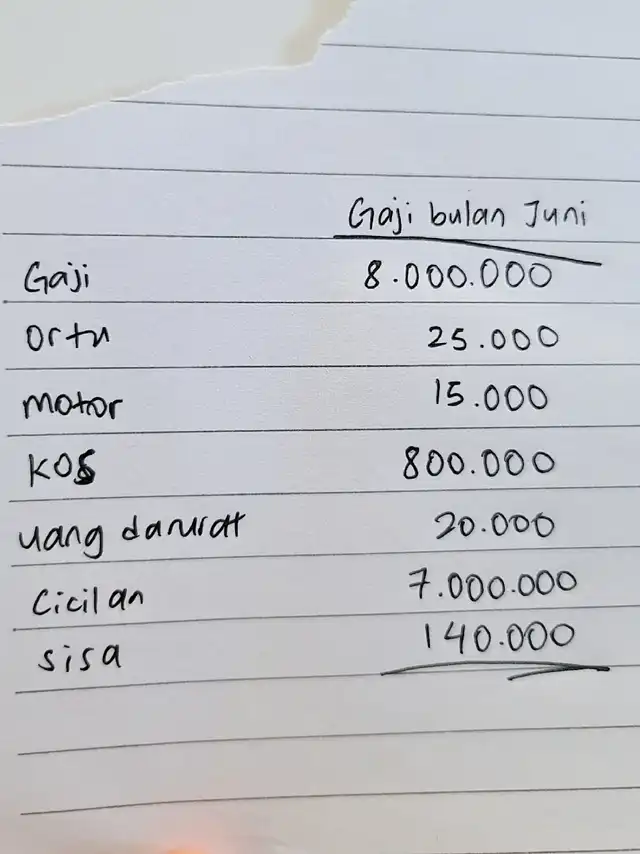 Gaji bulan Juni
Gaji 8.000.000
Ortu 25.000
motor 15.000
KOS 800.000
uang darurat 20.000
Cicilan 7.000.000
sisa 140.000